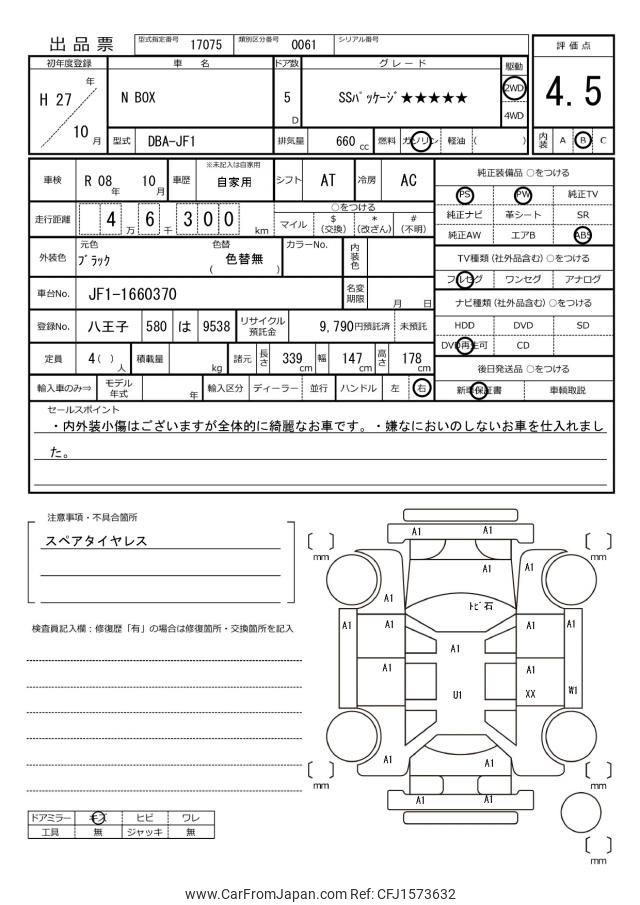 出品票
型式指定番号 17075 類別区分番号 0061 シリアル番号
評価点
4.5
内装 A B C
初年度登録 車名 ドア数 グレード 駆動
H 27 年 10 月
N BOX
5 D
SSﾊﾟｯｹｰｼﾞ★★★★★
2WD
4WD
型式 DBA-JF1 排気量 660 cc 燃料 ガソリン 軽油 ( )
車検 R 08 年 10 月 車歴 ※未記入は自家用 自家用 シフト AT 冷房 AC
走行距離 4 万 6 千 3 0 0 km
○をつける
マイル $(交換) *(改ざん) #(不明)
外装色 元色 ﾌﾞﾗｯｸ 色替 ( 色替無 ) カラーNo. 内装色
車台No. JF1-1660370 名変期限 月 日
登録No. 八王子 580 は 9538 リサイクル預託金 9,790 円預託済 未預託
定員 4 ( ) 人 積載量 kg 諸元 長さ 339 cm 幅 147 cm 高さ 178 cm
輸入車のみ⇒ モデル年式 年 輸入区分 ディーラー 並行 ハンドル 左 右
純正装備品 ○をつける
PS PW 純正TV
純正ナビ 革シート SR
純正AW エアB ABS
TV種類 (社外品含む) ○をつける
フルセグ ワンセグ アナログ
ナビ種類 (社外品含む) ○をつける
HDD DVD SD
DVD再生可 CD
後日発送品 ○をつける
新車保証書 車輌取説
セールスポイント
・内外装小傷はございますが全体的に綺麗なお車です。・嫌なにおいのしないお車を仕入れまし
た。
注意事項・不具合箇所
スペアタイヤレス
検査員記入欄：修復歴「有」の場合は修復箇所・交換箇所を記入
ドアミラー キズ ヒビ ワレ
工具 無 ジャッキ 無
A1 A1
mm mm
A1 A1
A1
ﾄﾋﾞ石
A1 A1 A1 A1
A1
A1 A1
U1 XX W1
A1 A1
mm mm
A1 A1
mm
www.CarFromJapan.com Ref: CFJ1573632